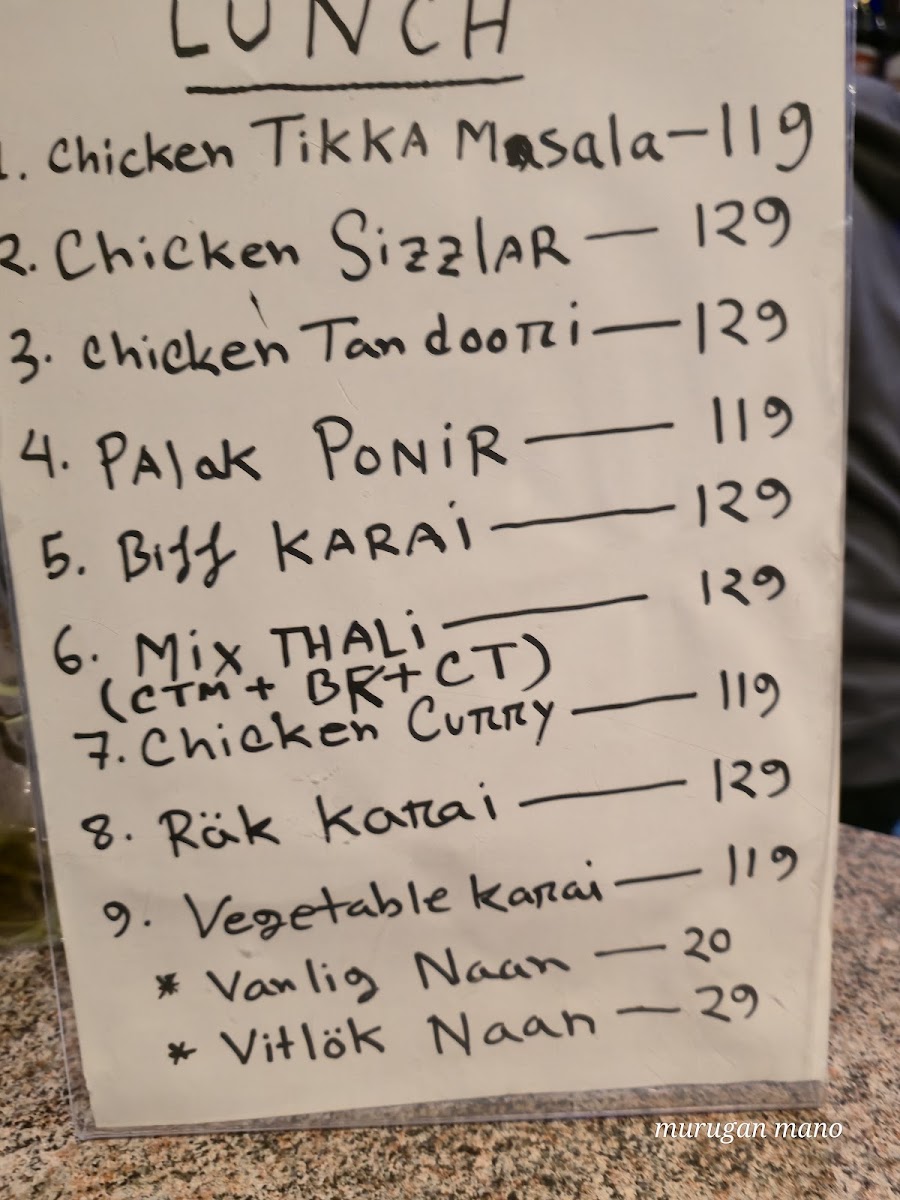 LUNCH
1. Chicken TIKKA Masala - 119
2. Chicken SizzlAR - 129
3. chicken Tandoori - 129
4. PAlak PONiR - 119
5. Biff KARAi - 129
6. Mix THALi - 129
(CTM + BK + CT)
7. Chicken Curry - 119
8. Räk karai - 129
9. Vegetable karai - 119
* Vanlig Naan - 20
* Vitlök Naan - 29
murugan mano